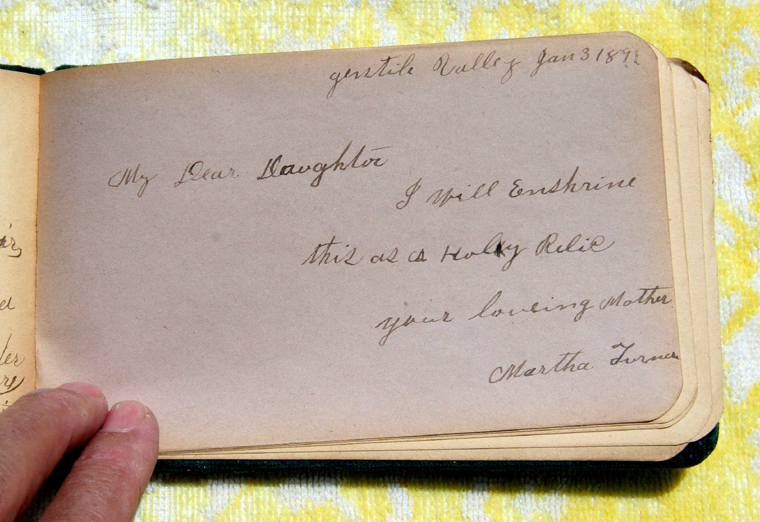 genstile Valley Jan 3 189
My Dear Daughter
I will Enshrine
this as a Holey Relic
your loveing Mother
Martha Turner